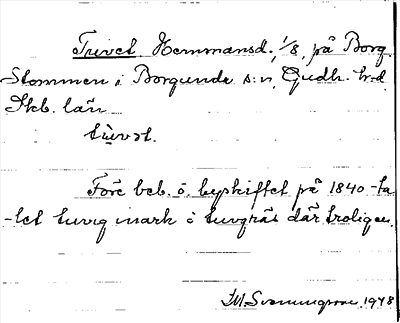 Tuvet. Hemmansd., 1/8, på Borg
Stommen i Borgunda s:n, Gudh. hrd.
Skb. län
tu̇vət.
Före beb. o. uppskiftet på 1840-ta-
-let tuvig mark o tuvgräs där troligen.
M. Svenningsson 1948